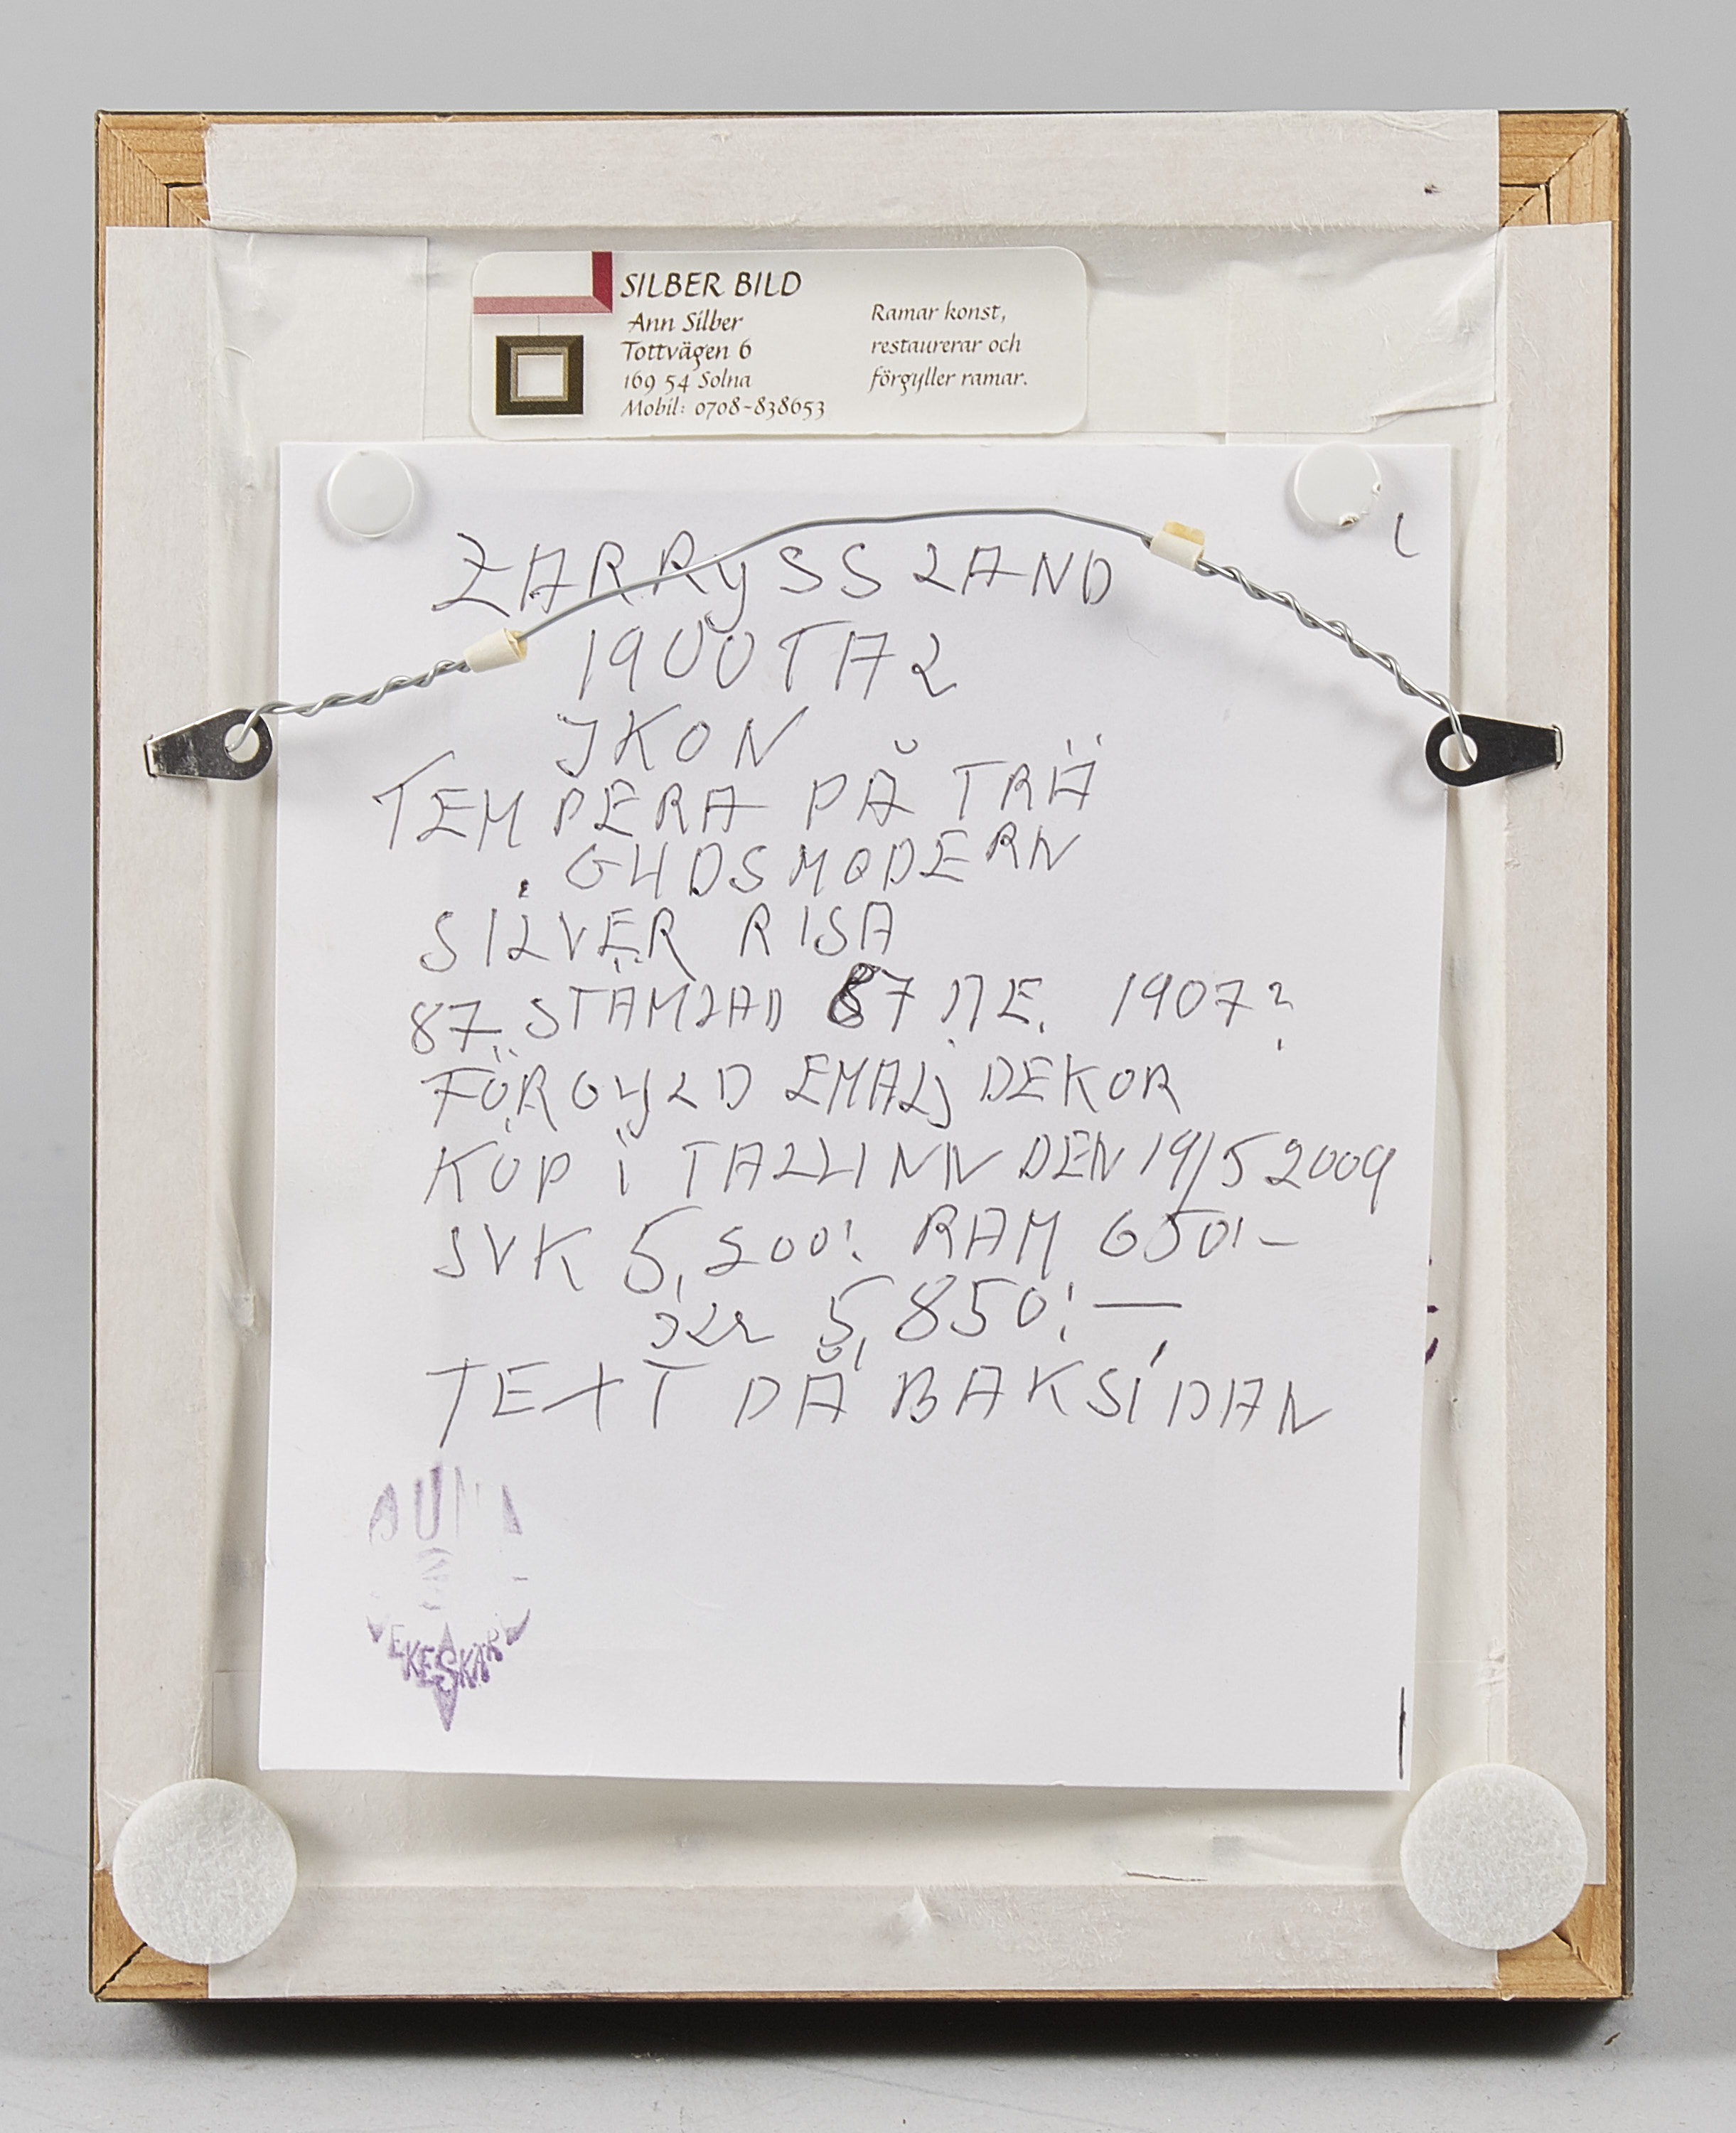 SILBER BILD
Ann Silber
Tottvägen 6
169 54 Solna
Mobil: 0708-838653
Ramar konst,
restaurerar och
förgyller ramar.
ZARRYSSLAND
1900TAL
IKON
TEMPERA PÅ TRÄ
GUDSMODERN
SILVER RISA
87. STÄMLAD 87 П.Е. 1907?
FÖRGYLD EMALJ DEKOR
KÖP I TALLINN DEN 19/5 2009
SVK 5,200:. RAM 650:-
5,850:—
TEXT PÅ BAKSIDAN
EKESKÄR